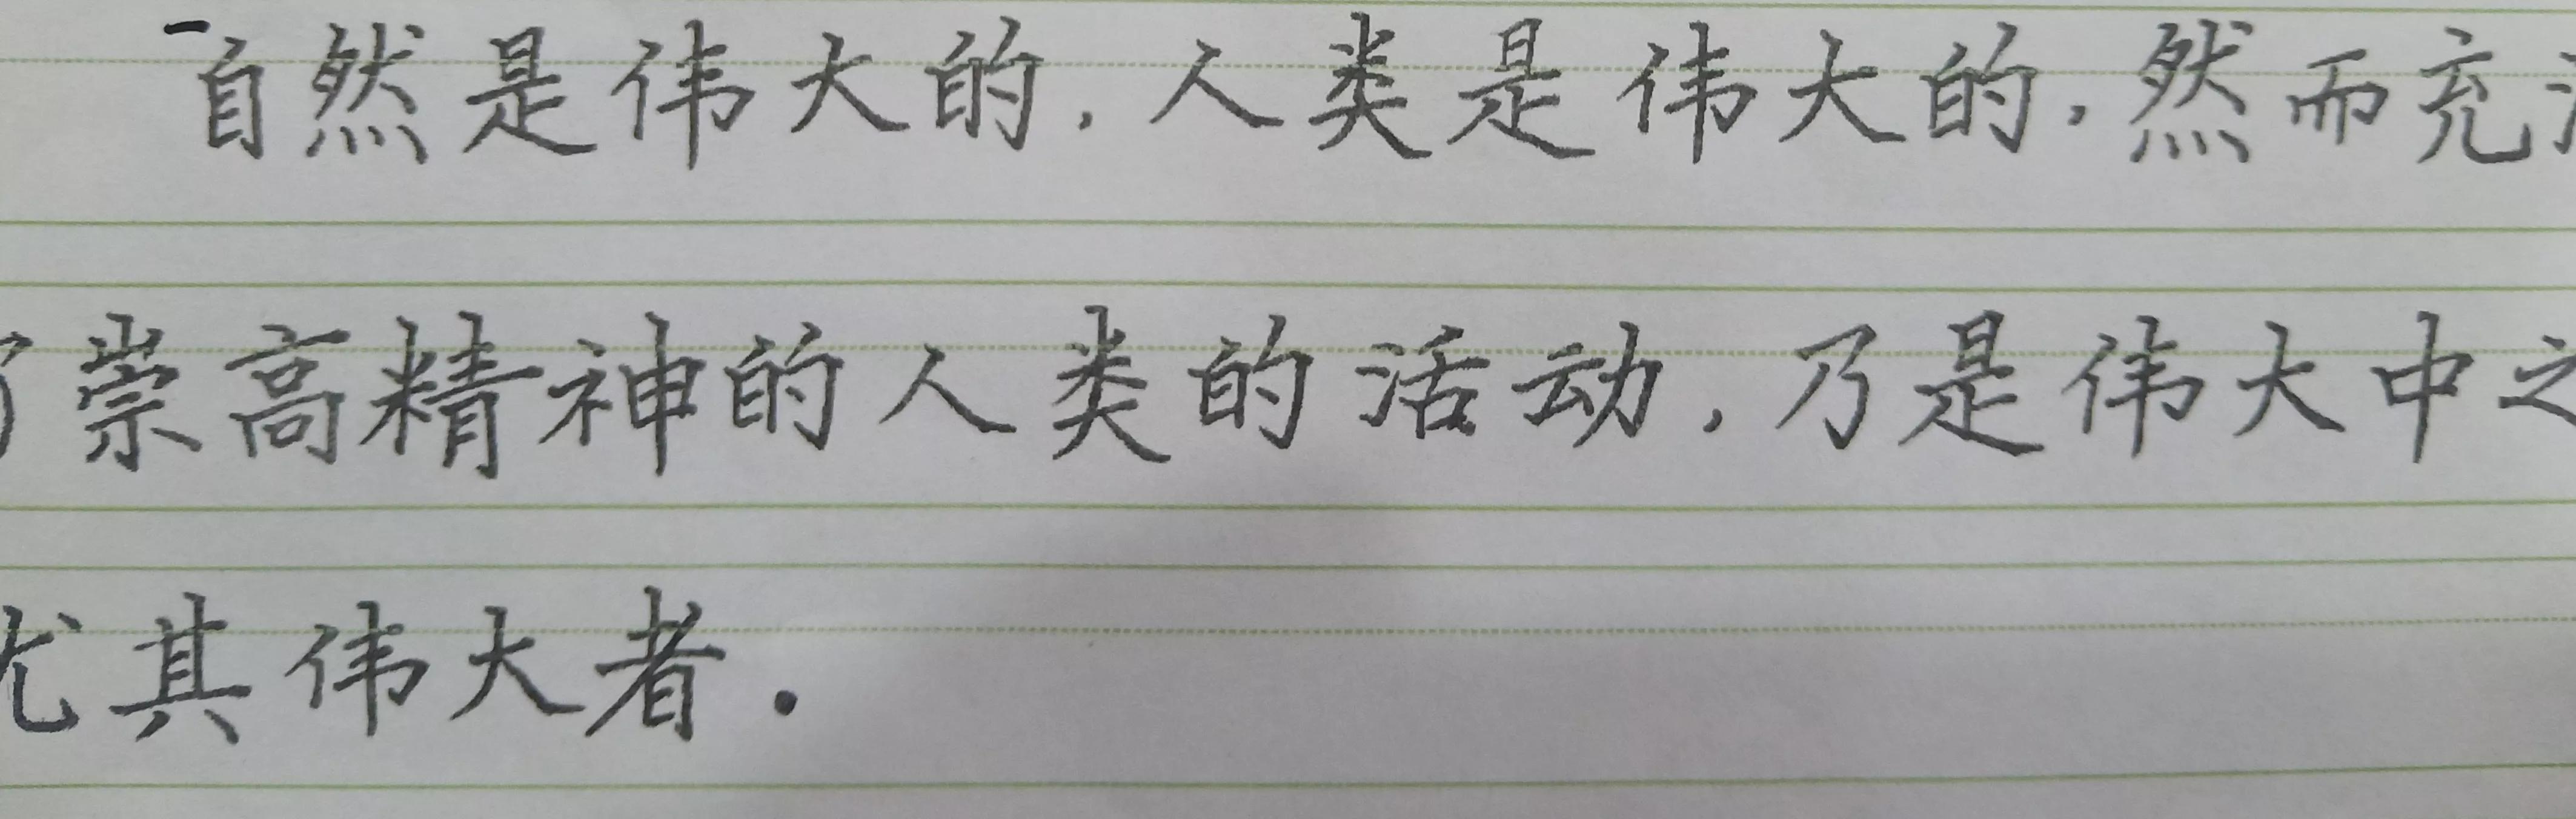 自然是伟大的,人类是伟大的,然而充
了崇高精神的人类的活动,乃是伟大中之
尤其伟大者.